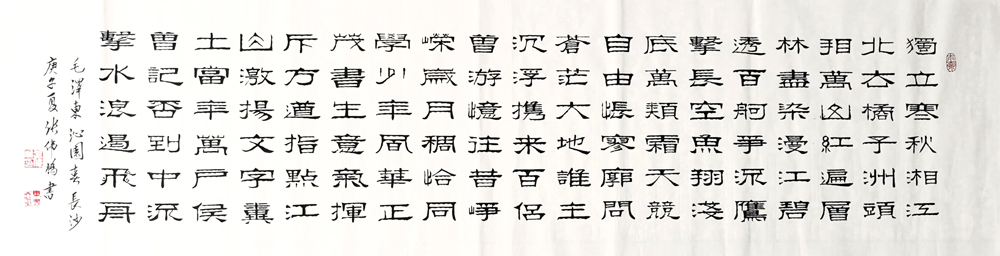 獨立寒秋湘江
北去橘子洲頭
看萬山紅遍層
林盡染漫江碧
透百舸爭流鷹
擊長空魚翔淺
底萬類霜天競
自由悵寥廓問
蒼茫大地誰主
沉浮携来百侶
曾游憶往昔崢
嶸歲月稠恰同
學少年風華正
茂書生意氣揮
斥方遒指點江
山激揚文字糞
土當年萬戶侯
曾記否到中流
擊水浪遏飛舟
毛澤東沁園春長沙
庚子夏張書